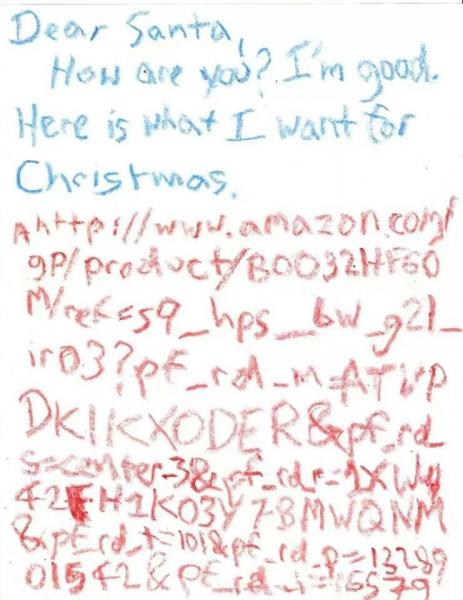 Dear Santa,
How are you? I'm good.
Here is what I want for
Christmas.
http://www.amazon.com/
gp/product/B0032HF60
M/ref=s9_hps_bw_g21_
ir03?pf_rd_m=ATVP
DKIKX0DER&pf_rd_
s=center-3&pf_rd_r=1XWY
42FH1K03Y78MWQNM
&pf_rd_t=101&pf_rd_p=13289
01542&pf_rd_i=165579